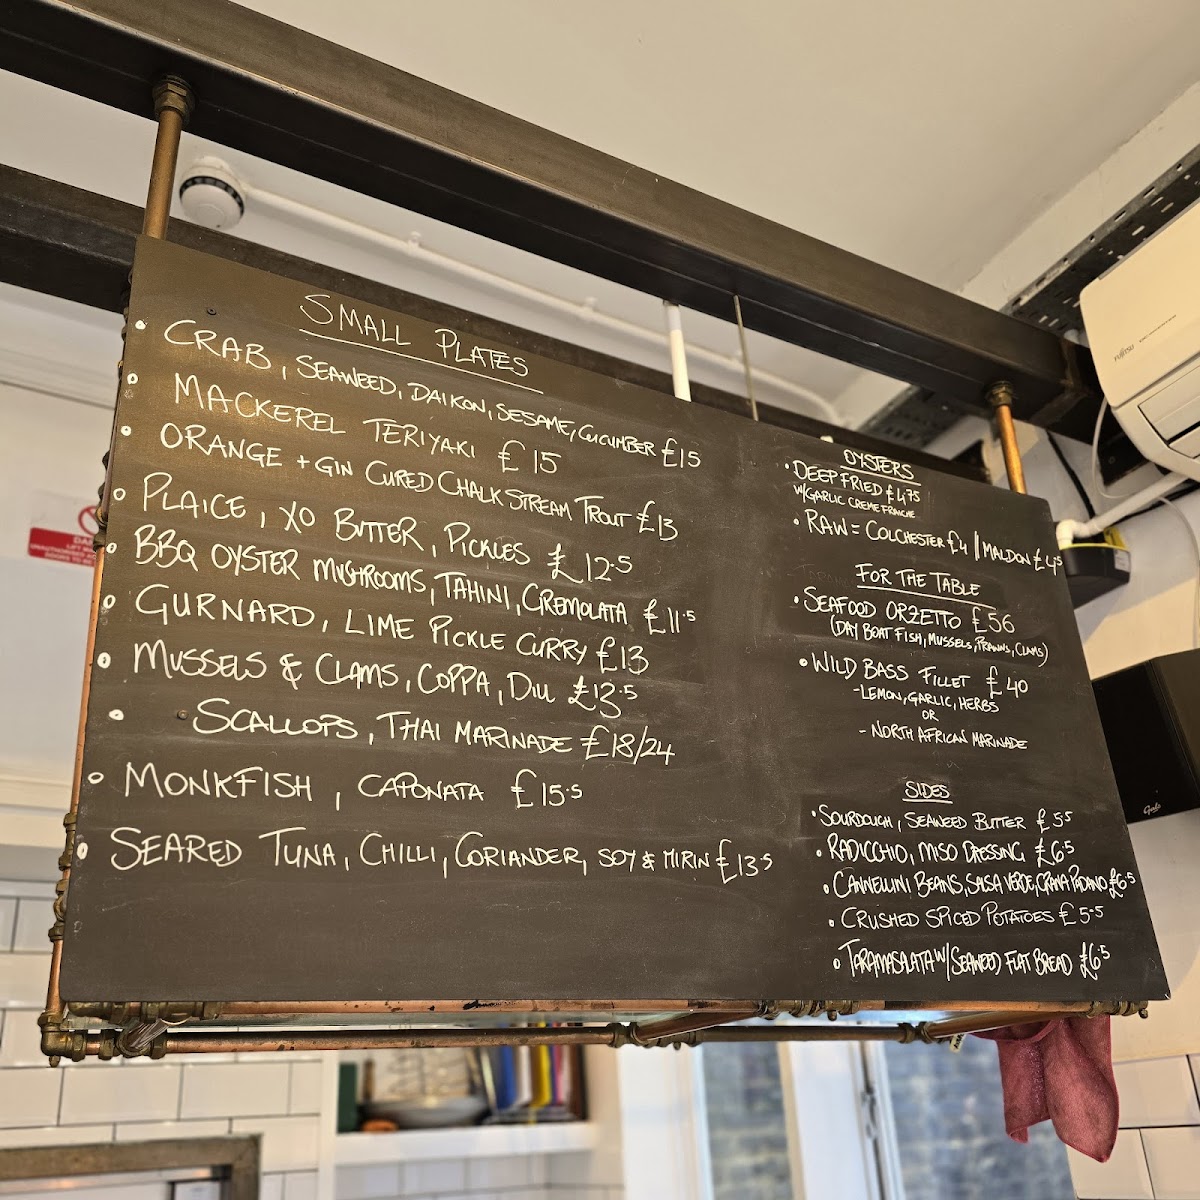 SMALL PLATES
CRAB, SEAWEED, DAIKON, SESAME, CUCUMBER £15
MACKEREL TERIYAKI £15
ORANGE + GIN CURED CHALK STREAM TROUT £13
PLAICE, XO BUTTER, PICKLES £12.5
BBQ OYSTER MUSHROOMS, TAHINI, GREMOLATA £11.5
GURNARD, LIME PICKLE CURRY £13
MUSSELS & CLAMS, COPPA, DILL £13.5
SCALLOPS, THAI MARINADE £18/24
MONKFISH, CAPONATA £15.5
SEARED TUNA, CHILLI, CORIANDER, SOY & MIRIN £13.5
OYSTERS
DEEP FRIED £4.75
W/GARLIC CREME FRAICHE
RAW = COLCHESTER £4 || MALDON £4.5
FOR THE TABLE
SEAFOOD ORZETTO £56
(DAY BOAT FISH, MUSSELS, PRAWNS, CLAMS)
WILD BASS FILLET £40
- LEMON, GARLIC, HERBS
OR
- NORTH AFRICAN MARINADE
SIDES
SOURDOUGH, SEAWEED BUTTER £5.5
RADICCHIO, MISO DRESSING £6.5
CANNELLINI BEANS, SALSA VERDE, GRANA PADANO £6.5
CRUSHED SPICED POTATOES £5.5
TARAMASALATA W/ SEAWEED FLAT BREAD £6.5
FUJITSU